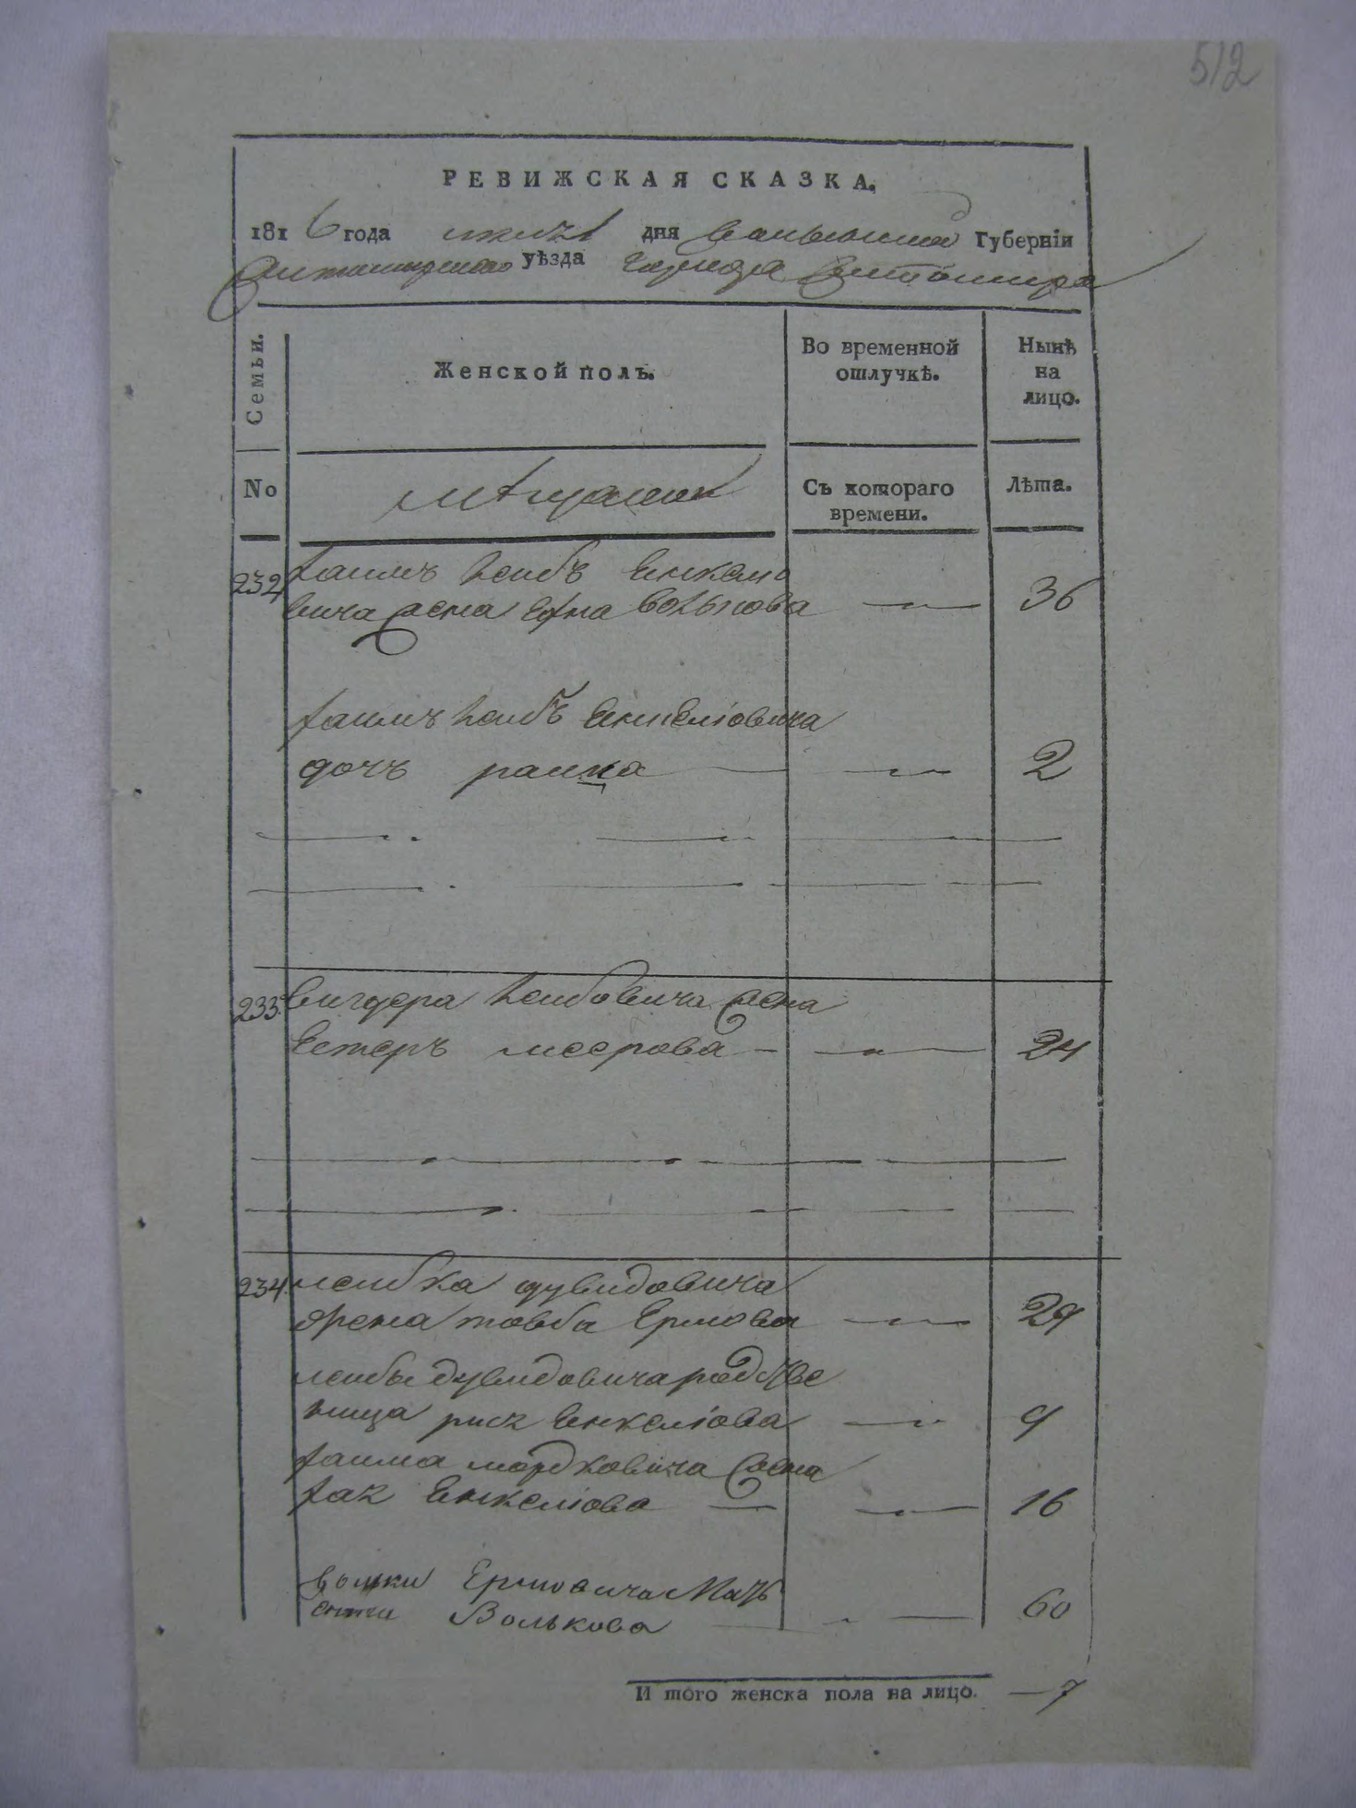 512
РЕВИЖСКАЯ СКАЗКА.
1816 года дня Волынской Губерніи
Житомирского уѣзда города Житомира
Семьи.
Женской полъ.
Во временной
отлучкѣ.
Нынѣ
на
лицо.
No
мѣщанъ
Съ котораго
времени.
Лѣта.
232 Хаимъ Лейбъ Енкелио
вича жена Волькова — 36
Хаимъ Лейбъ Енкеліовича
дочь раина — 2
233. Вигдера Лейбовича жена
Естеръ меерова — 24
234. Лейбка дувидовича
жена товба Ермова — 29
Лейбы дувидовича родстве
ница Енкеліова — 9
Хаима мордковича жена
Енкеліова — 16
Волки Ермовича Мать
Волькова — 60
И того женска пола на лицо. — 7